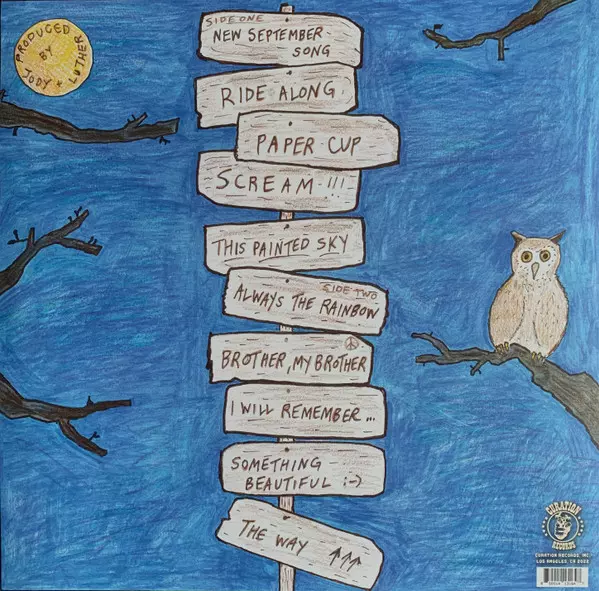 PRODUCED
BY
JODY + LUTHER
SIDE ONE
NEW SEPTEMBER
SONG
RIDE ALONG
PAPER CUP
SCREAM !!!
THIS PAINTED SKY
SIDE TWO
ALWAYS THE RAINBOW
BROTHER, MY BROTHER
I WILL REMEMBER...
SOMETHING
BEAUTIFUL :-)
THE WAY ↑↑↑
CURATION
RECORDS
CURATION RECORDS, INC.